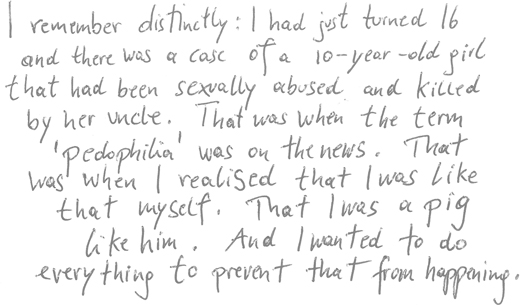 I remember distinctly: I had just turned 16
and there was a case of a 10-year-old girl
that had been sexually abused and killed
by her uncle. That was when the term
'pedophilia' was on the news. That
was when I realised that I was like
that myself. That I was a pig
like him. And I wanted to do
everything to prevent that from happening.